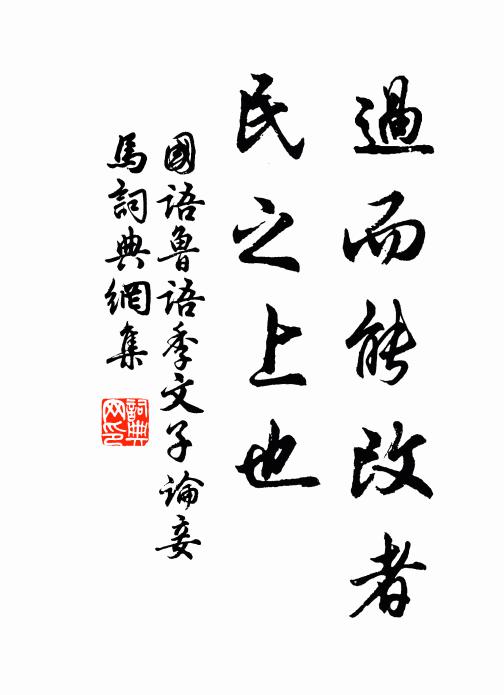 過而能改者
民之上也
國语鲁语季文子論妾
馬詞典網集
詞典
网印